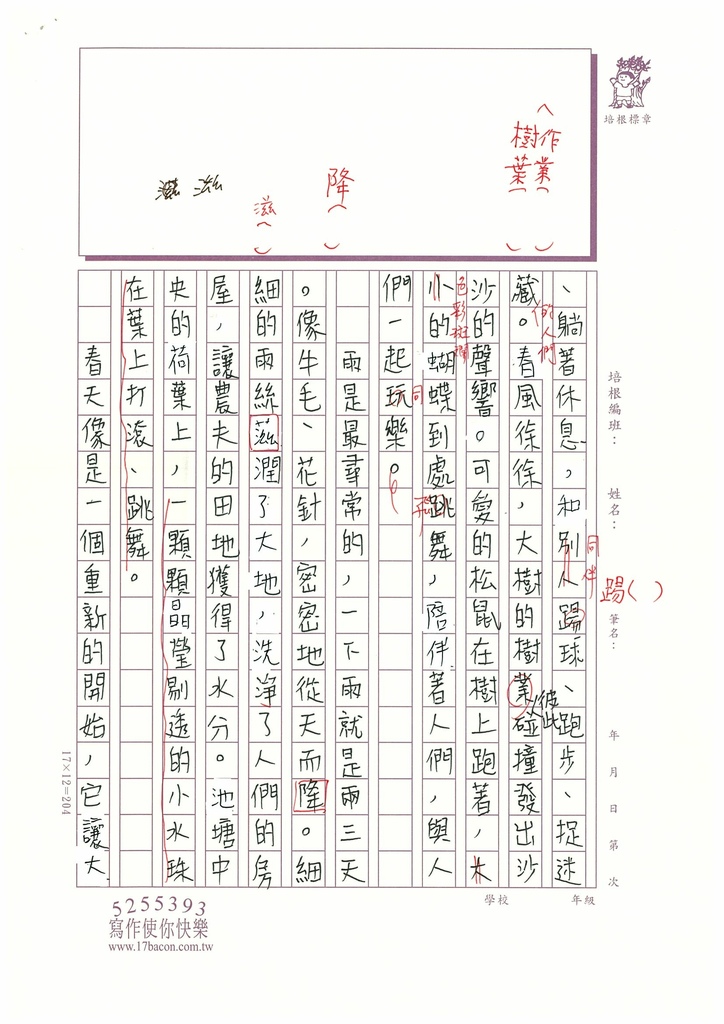 培根標章
︿作業︿ ﹀
樹葉︿ ﹀
降︿ ﹀
滋︿ ﹀
培根編班：
姓名：
筆名：
年 月 日 第 次
學校 年級
踢( )
、躺著休息，和別人踢球、跑步、捉迷
同伴
藏。春風徐徐，大樹的樹業碰撞發出沙
的人們
彼此
沙的聲響。可愛的松鼠在樹上跑著，大
色彩斑斕
小的蝴蝶到處跳舞，陪伴著人們，與人
同
們一起玩樂。
雨是最尋常的，一下雨就是兩三天
。像牛毛、花針，密密地從天而降。細
細的雨絲滋潤了大地，洗淨了人們的房
屋，讓農夫的田地獲得了水分。池塘中
央的荷葉上，一顆顆晶瑩剔透的小水珠
在葉上打滾、跳舞。
春天像是一個重新的開始，它讓大
17×12=204
5255393
寫作使你快樂
www.17bacon.com.tw